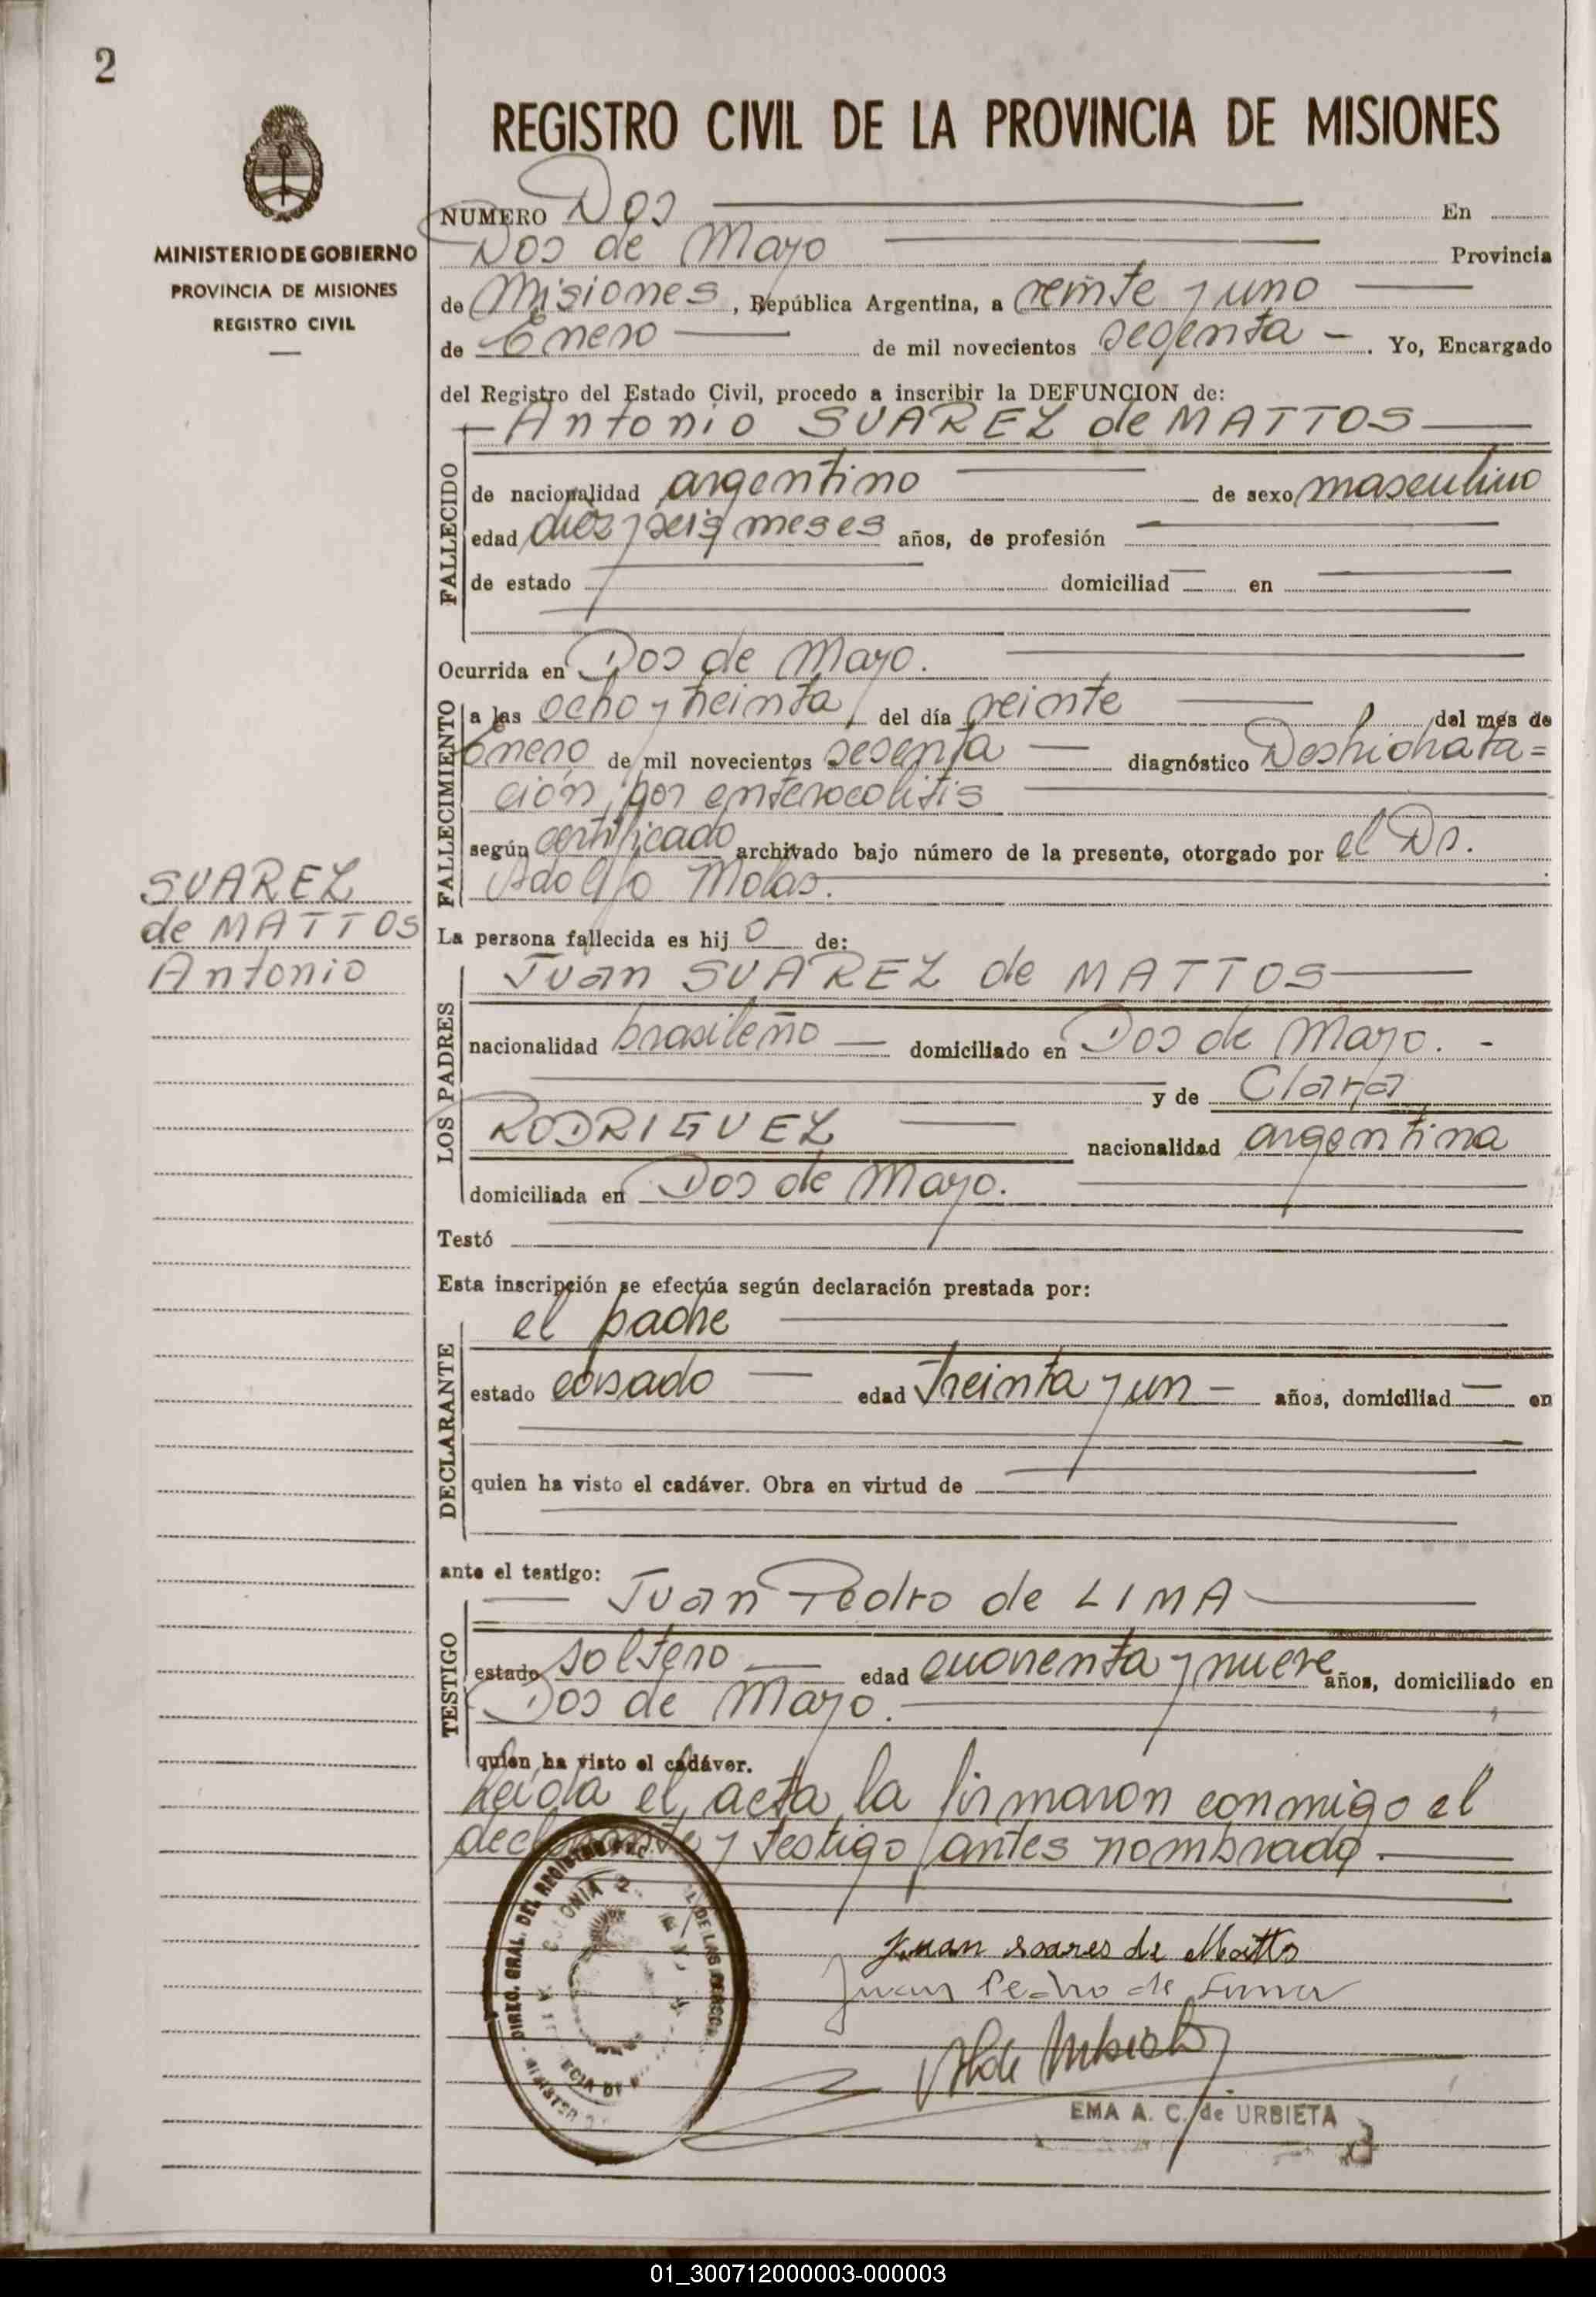 2
REGISTRO CIVIL DE LA PROVINCIA DE MISIONES
MINISTERIO DE GOBIERNO
PROVINCIA DE MISIONES
REGISTRO CIVIL
NUMERO Dos En
Dos de Mayo Provincia
de Misiones, República Argentina, a veinte y uno
de Enero de mil novecientos sesenta. Yo, Encargado
del Registro del Estado Civil, procedo a inscribir la DEFUNCION de:
Antonio SUAREZ de MATTOS
FALLECIDO
de nacionalidad argentino de sexo masculino
edad diez y seis meses años, de profesión
de estado domiciliad en
Ocurrida en Dos de Mayo.
FALLECIMIENTO
a las ocho y treinta del día veinte del mes de
Enero de mil novecientos sesenta diagnóstico Deshidrata=
ción, por enterocolitis
según certificado archivado bajo número de la presente, otorgado por el Dr.
Adolfo Molas.
SUAREZ
de MATTOS
Antonio
La persona fallecida es hijo de:
LOS PADRES
Juan SUAREZ de MATTOS
nacionalidad brasileño domiciliado en Dos de Mayo. -
y de Clara
RODRIGUEZ nacionalidad argentina
domiciliada en Dos de Mayo.
Testó
Esta inscripción se efectúa según declaración prestada por:
DECLARANTE
el padre
estado casado edad treinta y un años, domiciliad en
quien ha visto el cadáver. Obra en virtud de
ante el testigo:
TESTIGO
Juan Pedro de LIMA
estado soltero edad cuarenta y nueve años, domiciliado en
Dos de Mayo.
quien ha visto el cadáver.
Leída el acta la firmaron conmigo el
declarante y testigo antes nombrado.
DIREC. GRAL. DEL REGISTRO
COLONIA 2
Juan soares de Matto
Juan Pedro de Lima
EMA A. C. de URBIETA
01_300712000003-000003